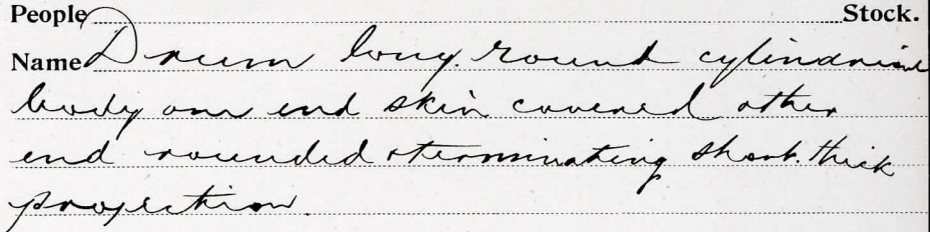 People Stock.
Name Drum long round cylindrical
body one end skin covered other
end rounded & terminating short thick
projection.